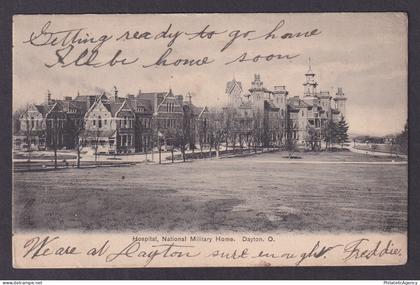 Getting ready to go home
I'll be home soon
Hospital, National Military Home. Dayton, O.
We are at Dayton sure enough. Freddie.